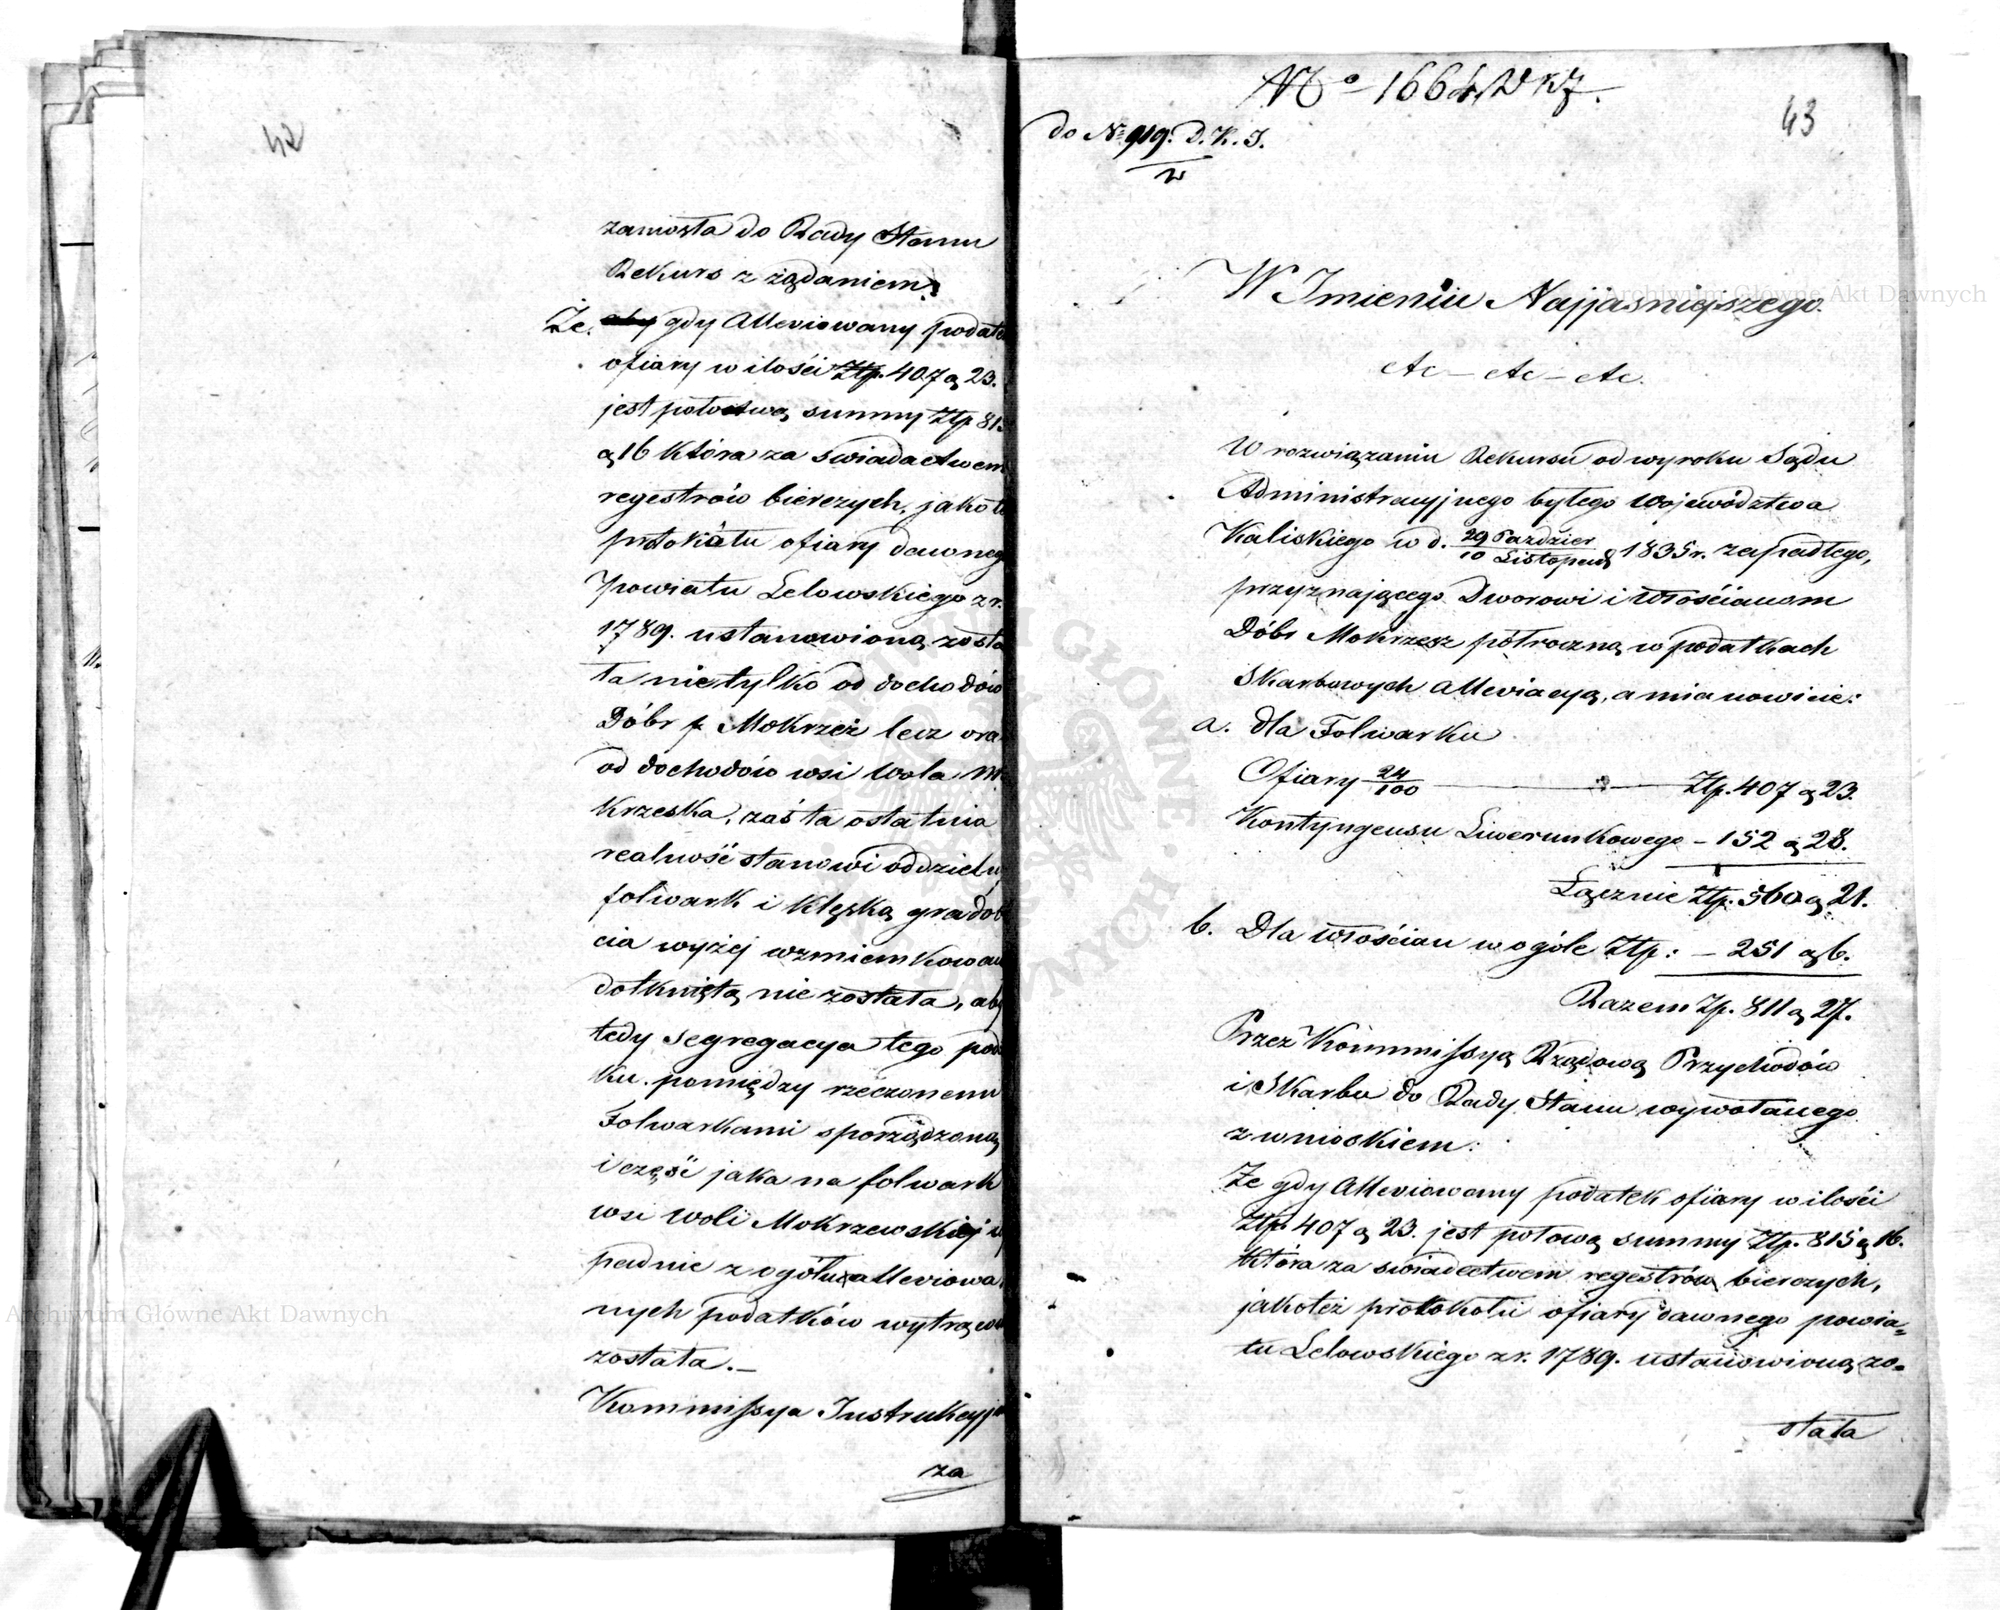 42
zaniosła do Rady Stanu
Rekurs z żądaniem:
Że. aby gdy Allewiowany podate
ofiary w ilości Ztp. 407 g 23.
jest połową summy Ztp 815
g 16 która za swiadectwem
regestrów bierczych, jako te
protokółu ofiary dawneg
Powiatu Lelowskiego z r.
1789. ustanowioną zosta
ła nietylko od dochodów
Dóbr Mokrzeż lecz ora
od dochodów wsi Wola M
krzeska, zaś ta ostatnia
realność stanowi oddzieln
folwark i klęską gradob
cia wyżej wzmiankowan
dotkniętą nie została, aby
tedy segregacya tego pod
ku. pomiędzy rzeczonemi
Folwarkami sporządzoną
i część jaka na folwark
wsi Woli Mokrzewskiej w
padnie z ogółu allewiowa
nych podatków wytrącon
została. –
Kommissya Instrukcyj
za
No 1664
43
do No 919. D. K. I.
W Imieniu Najjaśniejszego.
etc – etc – etc.
W rozwiązaniu Rekursu od wyroku Sądu
Administracyjnego byłego Województwa
Kaliskiego w d. 29 Paździer / 10 Listopad 1835 r. zapadłego,
przyznającego Dworowi i Włościanom
Dóbr Mokrzesz półroczną w podatkach
Skarbowych allewiacyą, a mianowicie:
a. dla Folwarku
Ofiary 24/100 – Ztp. 407 g 23.
Kontyngensu Liwerunkowego – 152 g 28.
Łącznie Ztp. 560 g 21.
b. Dla Włościan w ogóle Ztp: – 251 g 6.
Razem Zp. 811 g 27.
Przez Kommissyą Rządową Przychodów
i Skarbu do Rady Stanu wywołanego
z wnioskiem:
Że gdy Allewiowany podatek ofiary w ilości
Ztp. 407 g 23. jest połową summy Ztp. 815 g 16.
która za swiadectwem regestrów bierczych,
jakoteż protokołu ofiary dawnego powia=
tu Lelowskiego z r. 1789. ustanowioną zo=
stała
Archiwum Główne Akt Dawnych
Archiwum Główne Akt Dawnych